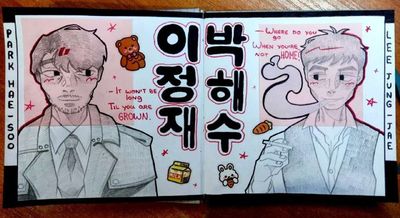 PARK HAE-SOO
- IT WON'T BE
LONG
TIL YOU ARE
GROWN.
이정재
박해수
- WHERE DO YOU
GO
WHEN YOU'RE
NOT HOME?
LEE JUNG-JAE